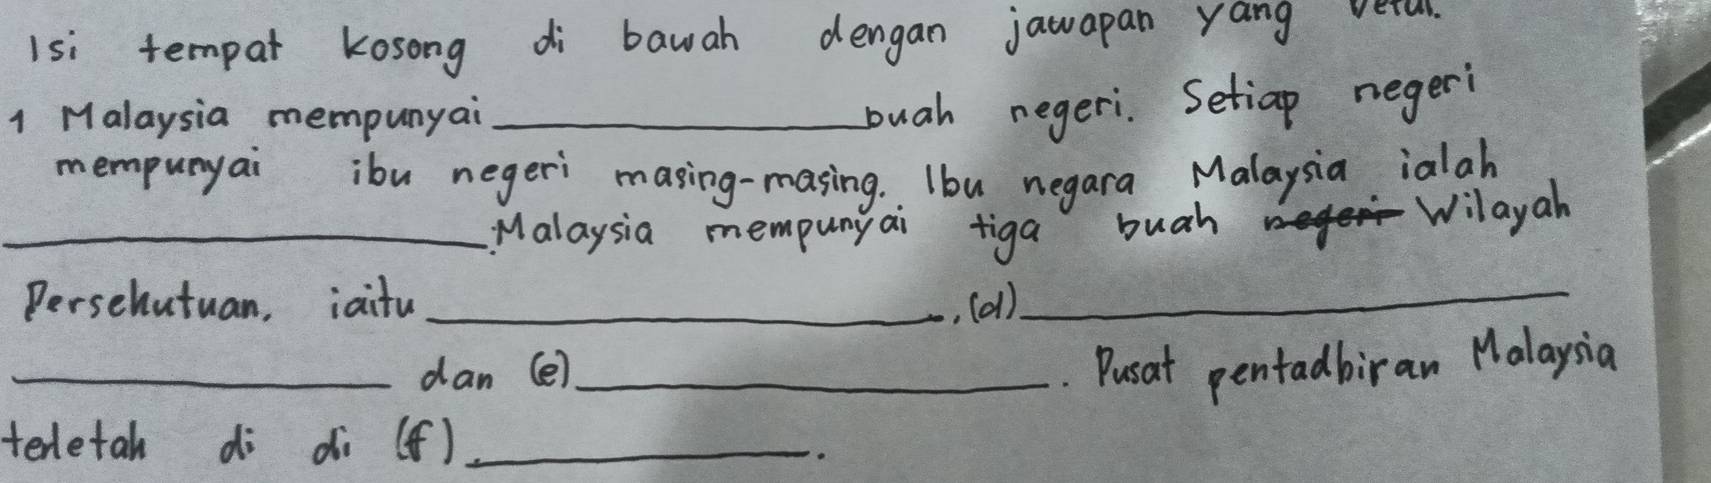 Isi tempat kosong di bawah dengan jawapan yang
1 Malaysia mempunyai ____________ buah negeri. Setiap negeri
mempunyai ibu negeri masing-masing. Ibu negara Malaysia ialah
____________. Malaysia mempunyai tiga buah negeri Wilayah
Persekutuan, iaitu ____________, (d) ____________
____________ dan (e) ____________. Pusat pentadbiran Malaysia
terletak di di (f) ____________.